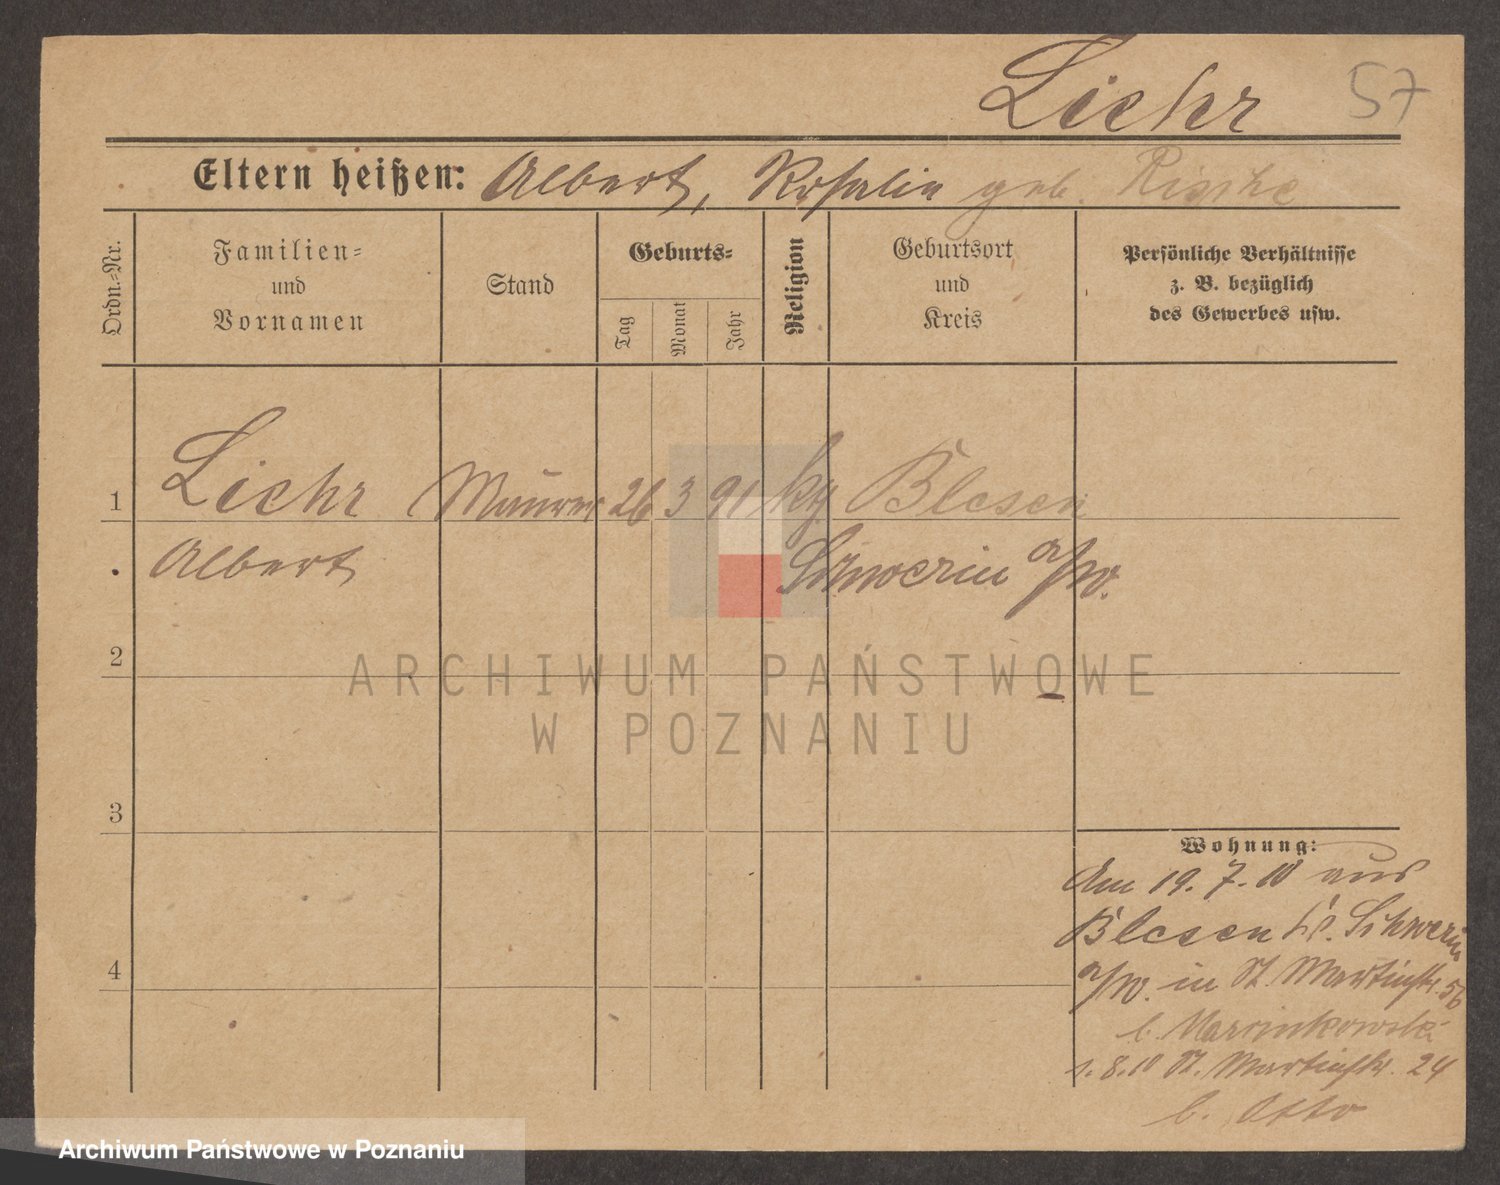 Liehr 57
Eltern heißen: Albert, Rosalie geb. Rische
Ordn.-Nr.
Familien-
und
Vornamen
Stand
Geburts-
Tag
Monat
Jahr
Religion
Geburtsort
und
Kreis
Persönliche Verhältnisse
z. B. bezüglich
des Gewerbes usw.
1 Liehr Maurer 26 3 91 kg Blesen
Albert Schwerin a/W.
2
3
4
Wohnung:
Am 19. 7. 10 aus
Blesen Kr. Schwerin
a/W. in St. Martinstr. 56
b. Marcinkowski
1. 8. 10 St. Martinstr. 24
b. Otto
ARCHIWUM PAŃSTWOWE
W POZNANIU
Archiwum Państwowe w Poznaniu